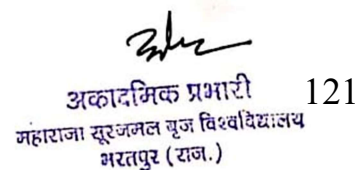 अकादमिक प्रभारी 121
महाराजा सूरजमल बृज विश्वविद्यालय
भरतपुर (राज.)